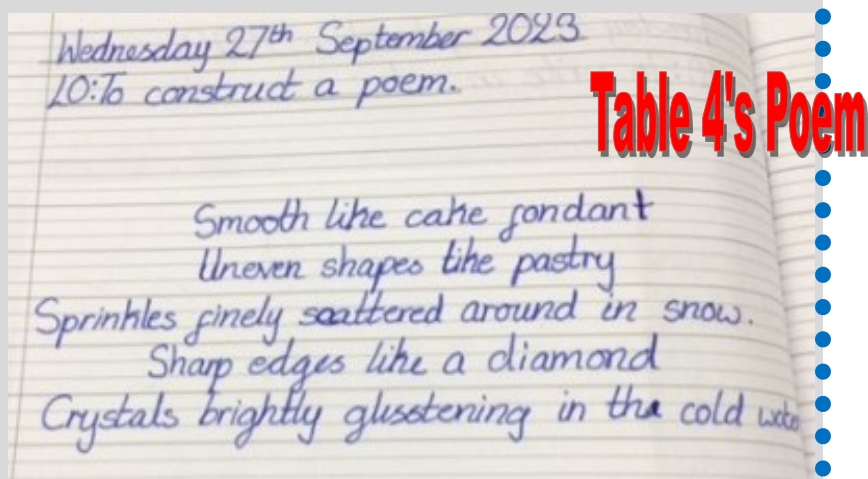 Wednesday 27th September 2023
LO:To construct a poem.
Table 4's Poem
Smooth like cake fondant
Uneven shapes like pastry
Sprinkles finely scattered around in snow.
Sharp edges like a diamond
Crystals brightly glusstening in the cold